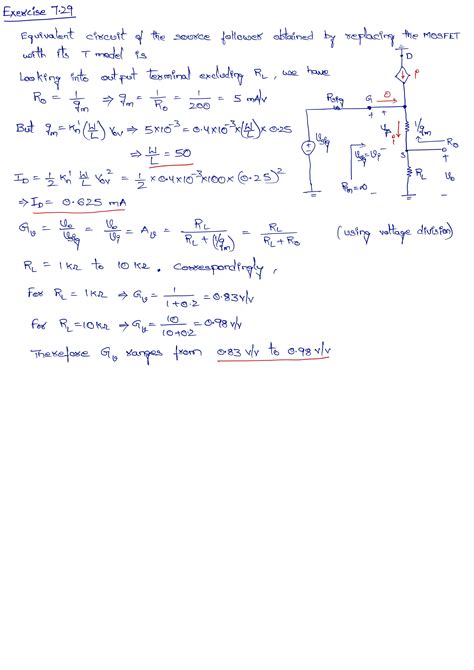 Exercise 7.29
Equivalent circuit of the source follower obtained by replacing the MOSFET
with its T model is
Looking into output terminal excluding RL, we have
Ro = 1/gm ⇒ gm = 1/Ro = 1/200 = 5 mA/V
But gm = kn' (W/L) Vov ⇒ 5×10^-3 = 0.4×10^-3 × (W/L) × 0.25
⇒ W/L = 50
ID = 1/2 kn' W/L Vov^2 = 1/2 × 0.4×10^-3 × 100 × (0.25)^2
⇒ ID = 0.625 mA
Gv = vo/vsig = vo/vi = Av = RL/(RL + (1/gm)) = RL/(RL + Ro) (using voltage division)
RL = 1kΩ to 10kΩ. Correspondingly,
For RL = 1kΩ ⇒ Gv = 1/(1+0.2) = 0.83 V/V
For RL = 10kΩ ⇒ Gv = 10/(10+0.2) = 0.98 V/V
Therefore Gv ranges from 0.83 V/V to 0.98 V/V
D
Rsig
G
0
+
+
1/gm
Ro
vsig
S
+
Rin = ∞
RL
vo